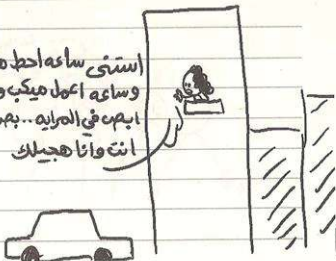 استنى ساعه احط م
وساعه اعمل ميكب و
ابص في المرايه .. بص
انت وانا هجيلك